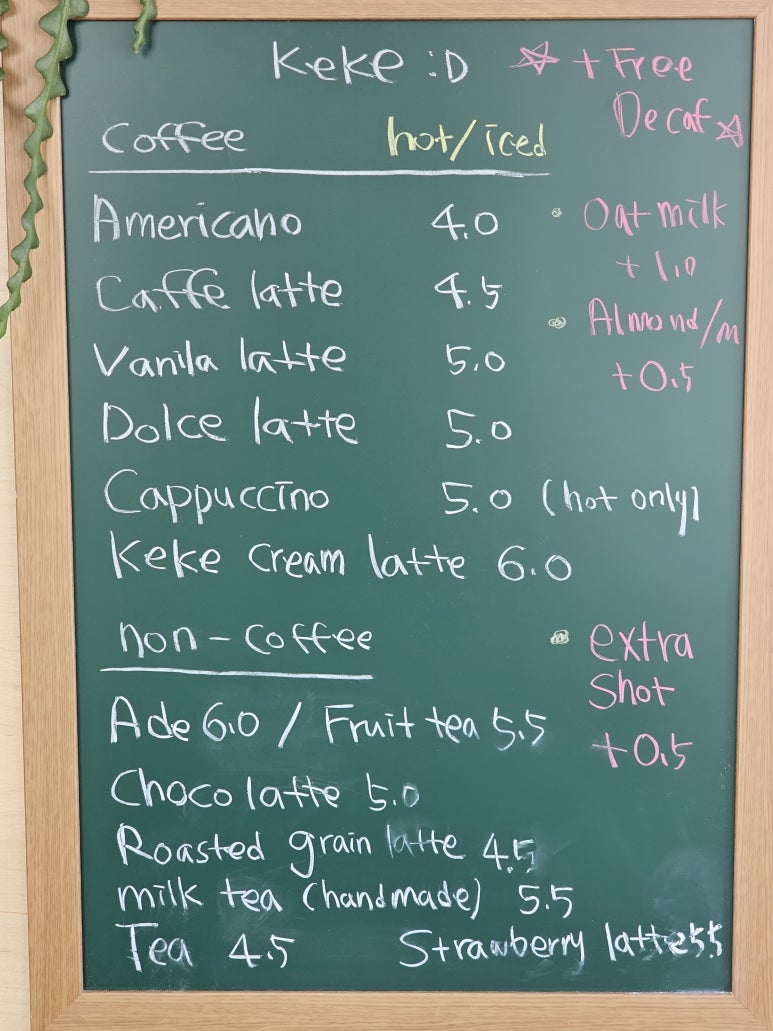 Keke :D ☆ + Free
Decaf ☆
Coffee hot/iced
Americano 4.0 • Oat milk
+ 1.0
Caffe latte 4.5
• Almond/m
Vanila latte 5.0
+0.5
Dolce latte 5.0
Cappuccino 5.0 (hot only)
Keke cream latte 6.0
non-coffee • extra
Shot
Ade 6.0 / Fruit tea 5.5
+0.5
Choco latte 5.0
Roasted grain latte 4.5
milk tea (handmade) 5.5
Tea 4.5 Strawberry latte 5.5